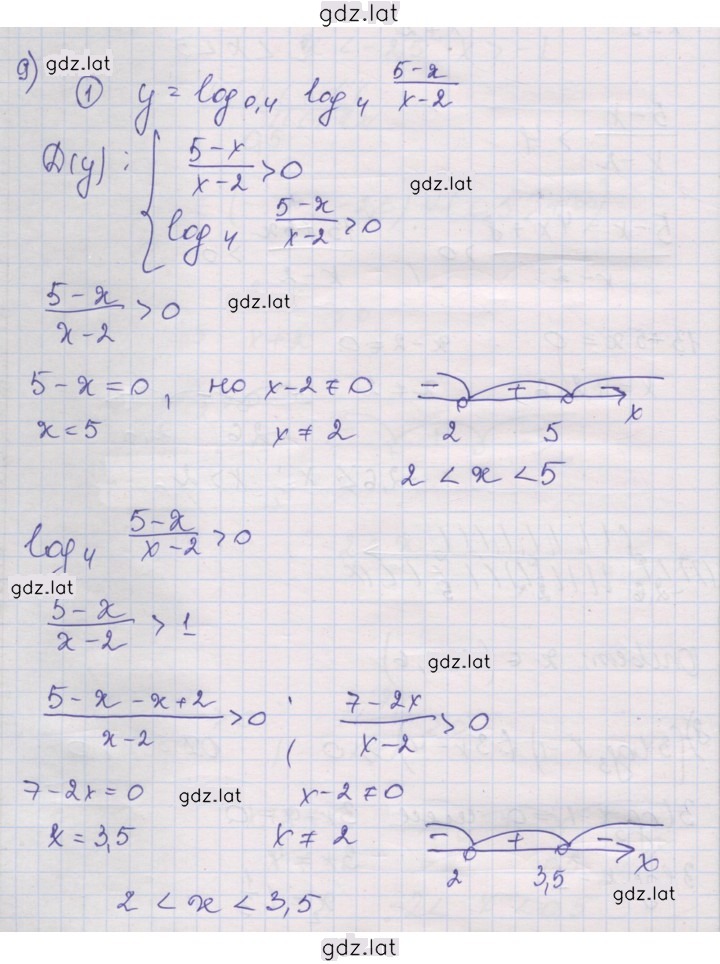 gdz.lat
9) gdz.lat
① y = log₀,₄ log₄ (5-x)/(x-2)
D(y): { (5-x)/(x-2) > 0
gdz.lat
log₄ (5-x)/(x-2) > 0
(5-x)/(x-2) > 0 gdz.lat
5-x=0, но x-2≠0 - + - x
x=5 x≠2 2 5
2 < x < 5
log₄ (5-x)/(x-2) > 0
gdz.lat
(5-x)/(x-2) > 1
gdz.lat
(5-x-x+2)/(x-2) > 0 ; (7-2x)/(x-2) > 0
7-2x=0 gdz.lat x-2≠0
x=3,5 x≠2 - + - x
2 3,5
gdz.lat
2 < x < 3,5
gdz.lat